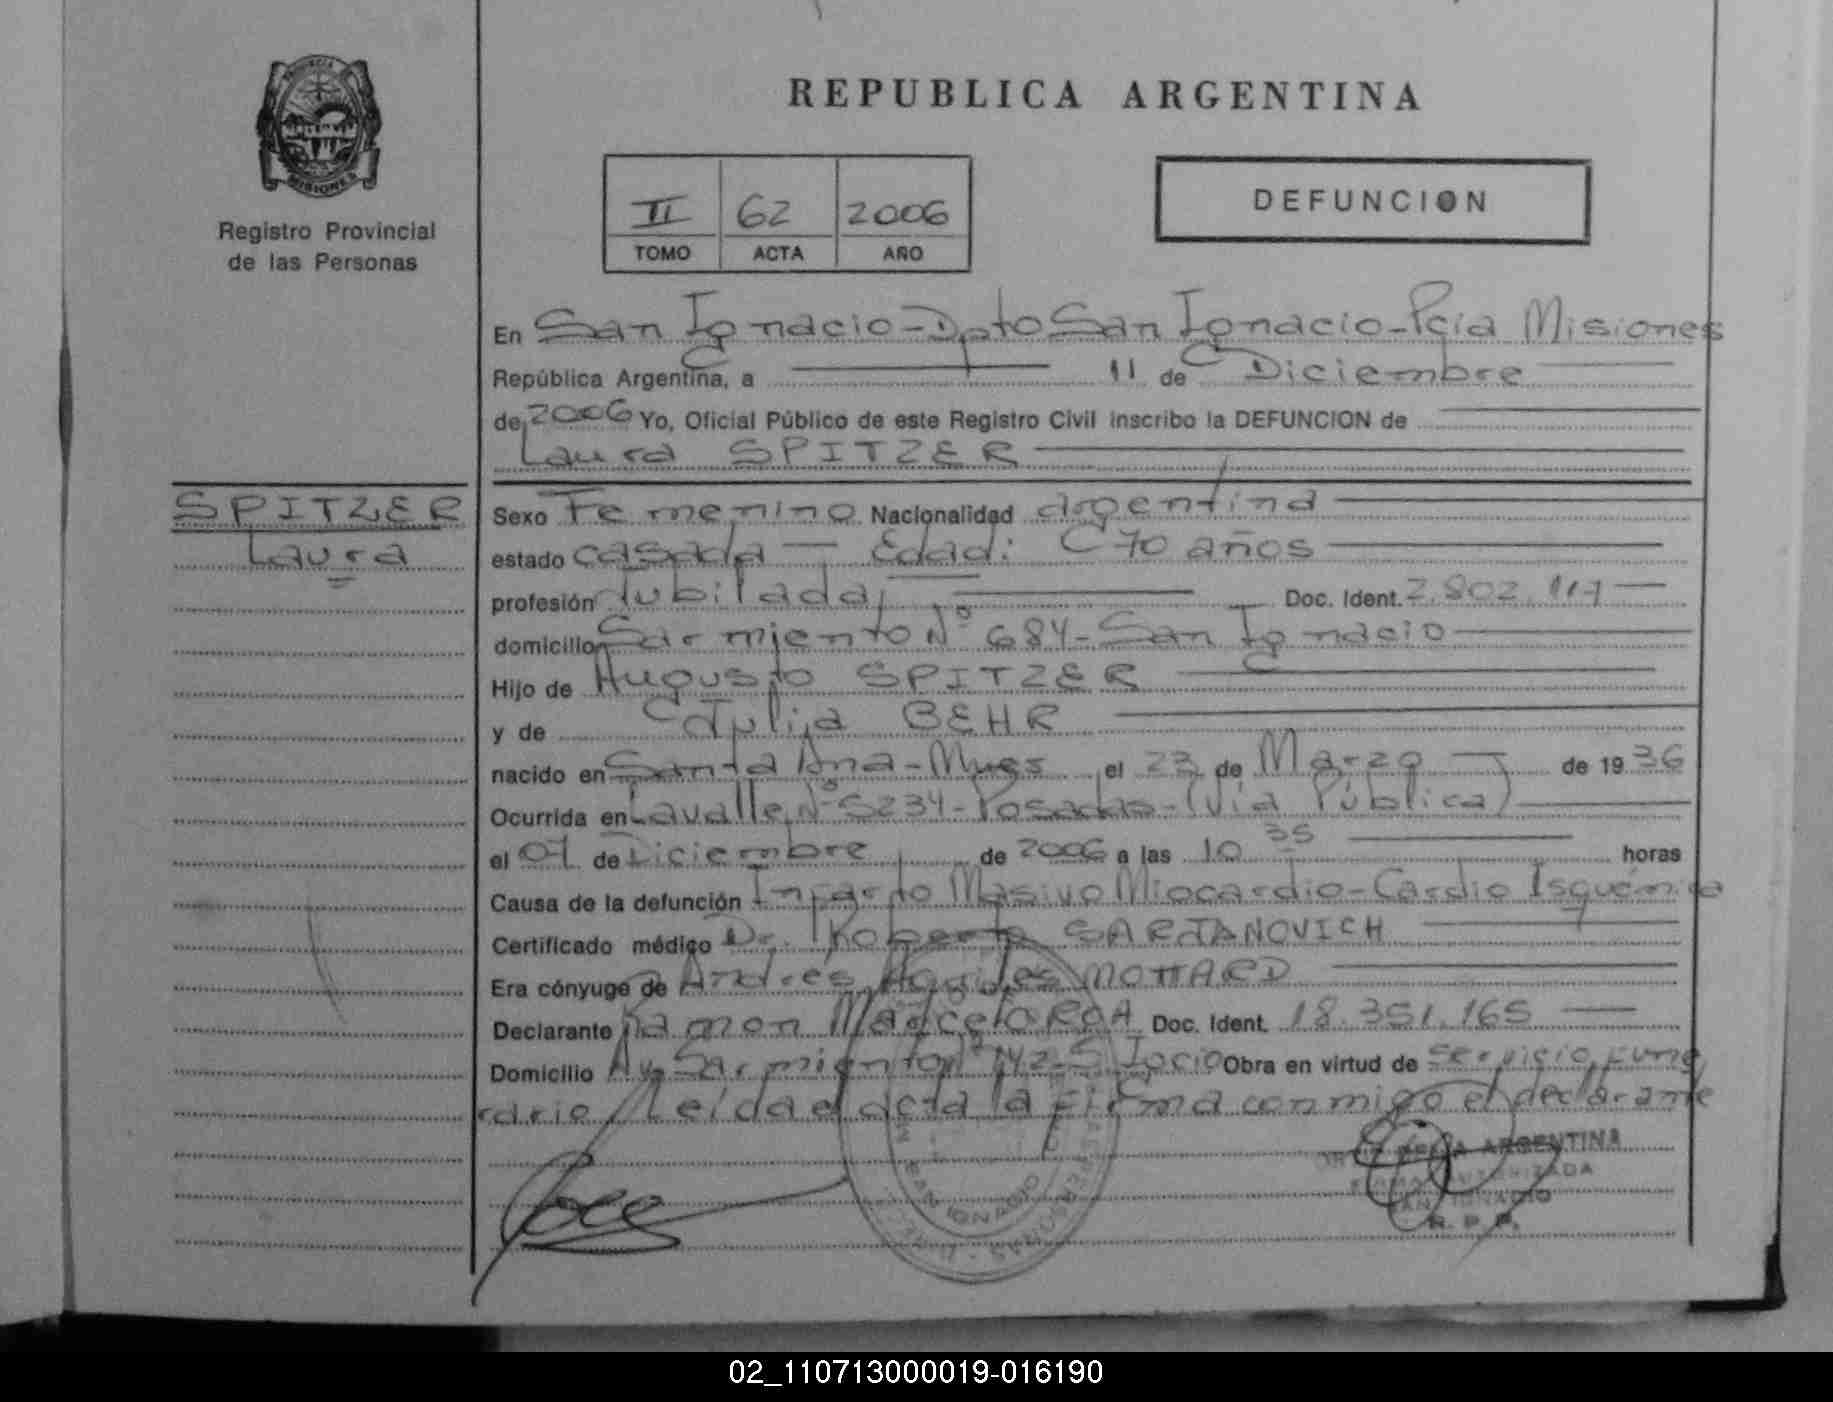 PROVINCIA DE
MISIONES
Registro Provincial
de las Personas
REPUBLICA ARGENTINA
II 62 2006
TOMO ACTA AÑO
DEFUNCION
En San Ignacio-Dpto San Ignacio-Pcia Misiones
República Argentina, a 11 de Diciembre
de 2006 Yo, Oficial Público de este Registro Civil inscribo la DEFUNCION de
Laura SPITZER
SPITZER
Laura
Sexo Femenino Nacionalidad argentina
estado casada - Edad: 70 años
profesión Jubilada Doc. Ident. 2.802.117
domicilio Sarmiento Nº 684-San Ignacio
Hijo de Augusto SPITZER
y de Julia BEHR
nacido en Santa Ana-Mnes el 23 de Marzo de 1936
Ocurrida en Lavalle Nº 5234-Posadas-(Vía Pública)
el 07 de Diciembre de 2006 a las 10 35 horas
Causa de la defunción Infarto Masivo Miocardio-Cardio Isquémica
Certificado médico Dr. Roberto SARJANOVICH
Era cónyuge de Andrés MOTTARD
Declarante Ramon Marcelo ROA Doc. Ident. 18.351.165
Domicilio Av. Sarmiento Nº 142-S. Igcio Obra en virtud de servicio fune
rario Leida el acta la firma conmigo el declarante
ARGENTINA
AUTORIZADA
SAN IGNACIO
R. P. P.
SAN IGNACIO
02_110713000019-016190